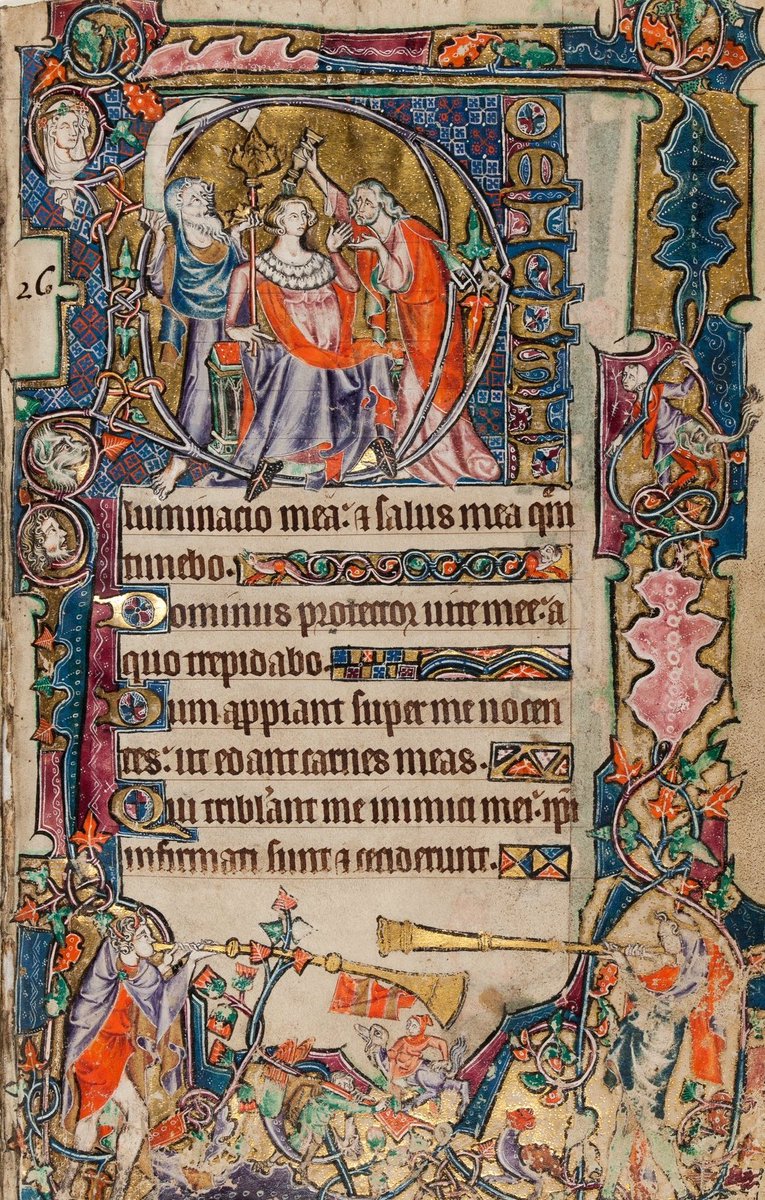 26
Dominus il
luminacio mea: ⁊ salus mea qm̄
timebo.
Dominus protector uite mee: a
quo trepidabo.
Dum appiant super me nocen
tes: ut edant carnes meas.
Qui tribl'ant me inimici mei: ip̄i
infirmati sunt ⁊ ceciderunt.